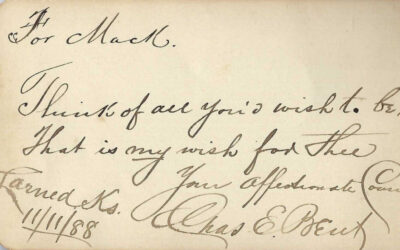 For Mack.
Think of all you'd wish to be,
That is my wish for Thee
Your affectionate Cousin
Larned Ks.
11/11/88
Chas E. Bent